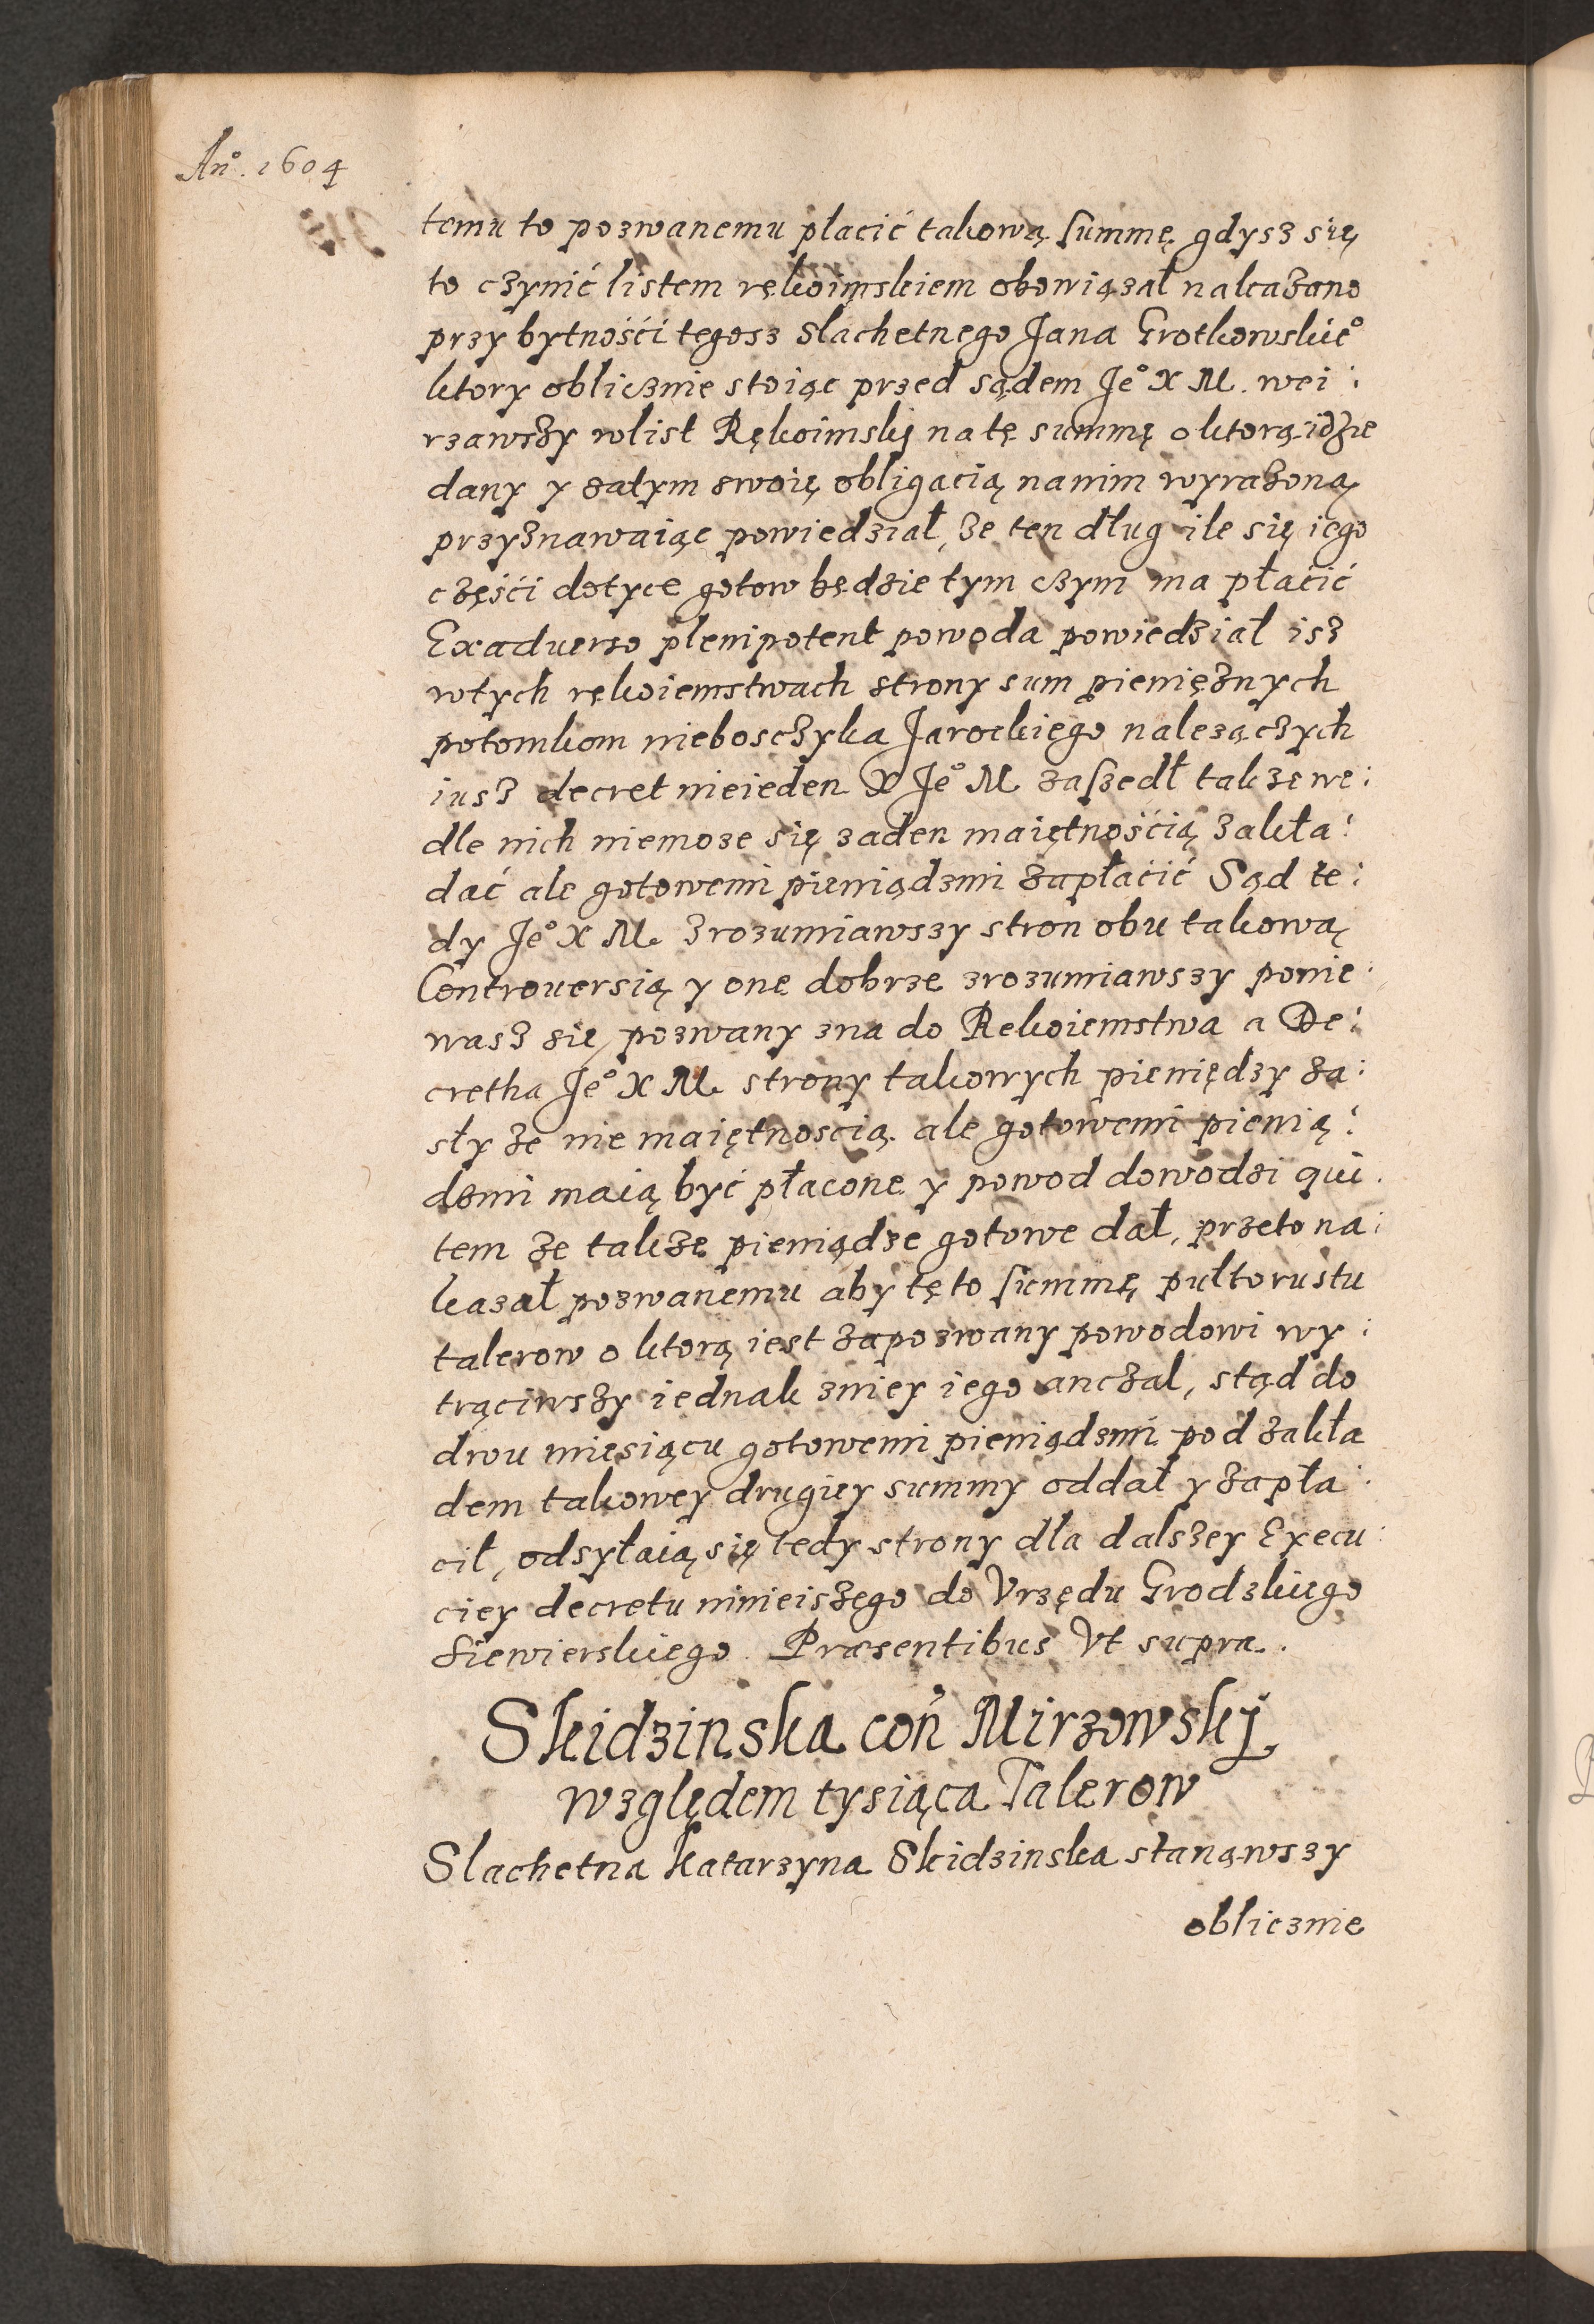 An͠o. 1604
temu to pozwanemu płacić takową summę gdysz się
to czynić listem rękoimskiem obowiązał nakazano
przy bytności tegosz Slachetnego Jana Grotkowskie͠o
ktory oblicznie stoiąc przed sądem Je͠o X M. wei:
rzawszy wlist Rękoimskj na tę summę o ktorą idzie
dany y zatym swoię obligacią nanim wyrażoną
przyznawaiąc powiedział, że ten dług ile się iego
części dotyce gotow będzie tym czym ma płacić
Exaduerso plenipotent powoda powiedział isz
wtych rękoiemstwach strony sum pieniężnych
potomkom nieboszczyka Jarockiego należączych
iusz decret nieieden X Je͠o M zaszedł takze we:
dle nich niemoze się zaden maiętnością zakła:
dać ale gotowemi pieniądzmi zapłacić Sąd te:
dy Je͠o X M zrozumiawszy stron obu takową
Controuersią y onę dobrze zrozumiawszy ponie:
wasz się pozwany zna do Rekoiemstwa a De:
cretha Je͠o X M strony takowych pieniędzy za:
sły że nie maiętnoscią ale gotowemi pienią:
dzmi maią być płacone y powod dowodzi qui.
tem że także pieniądze gotowe dał, przeto na:
kazał pozwanemu aby tę to summę pułtorustu
talerow o ktorą iest zapozwany powodowi wy:
trąciwszy iednak zniey iego anczał, stąd do
dwu miesiącu gotowemi pieniądzmi pod zakła
dem takowey drugiey summy oddał y zapła:
cił, odsyłaią się tedy strony dla dalszey Execu:
ciey decretu ninieiszego do Vrzędu Grodzkiego
Siewierskiego. Præsentibus Vt supra.
Skidzinska coñ Mirzowskj
względem tysiąca Talerow
Slachetna Katarzyna Skidzinska stanąwszy
oblicznie